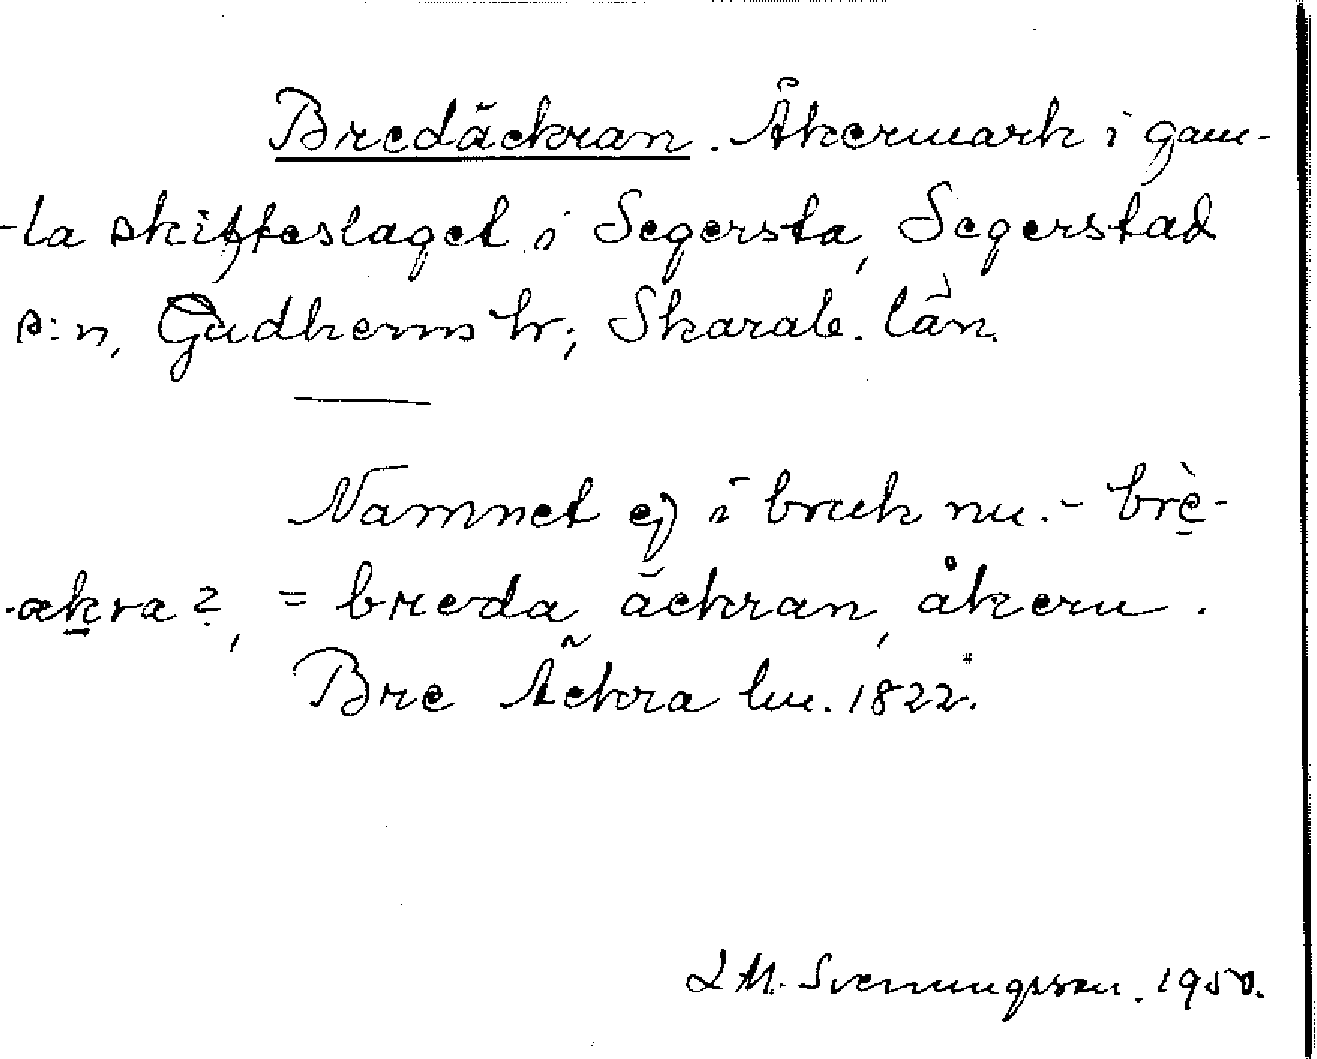 Bredäckran. Åkermark i gam-
-la skifteslaget i Segersta, Segerstad
s:n, Gudhems hr; Skarab. län.
Namnet ej i bruk nu. - brè-
-ækra?, = breda äckran, åkern.
Bre Äckra lm. 1822.
L M. Svenungsson. 1950.